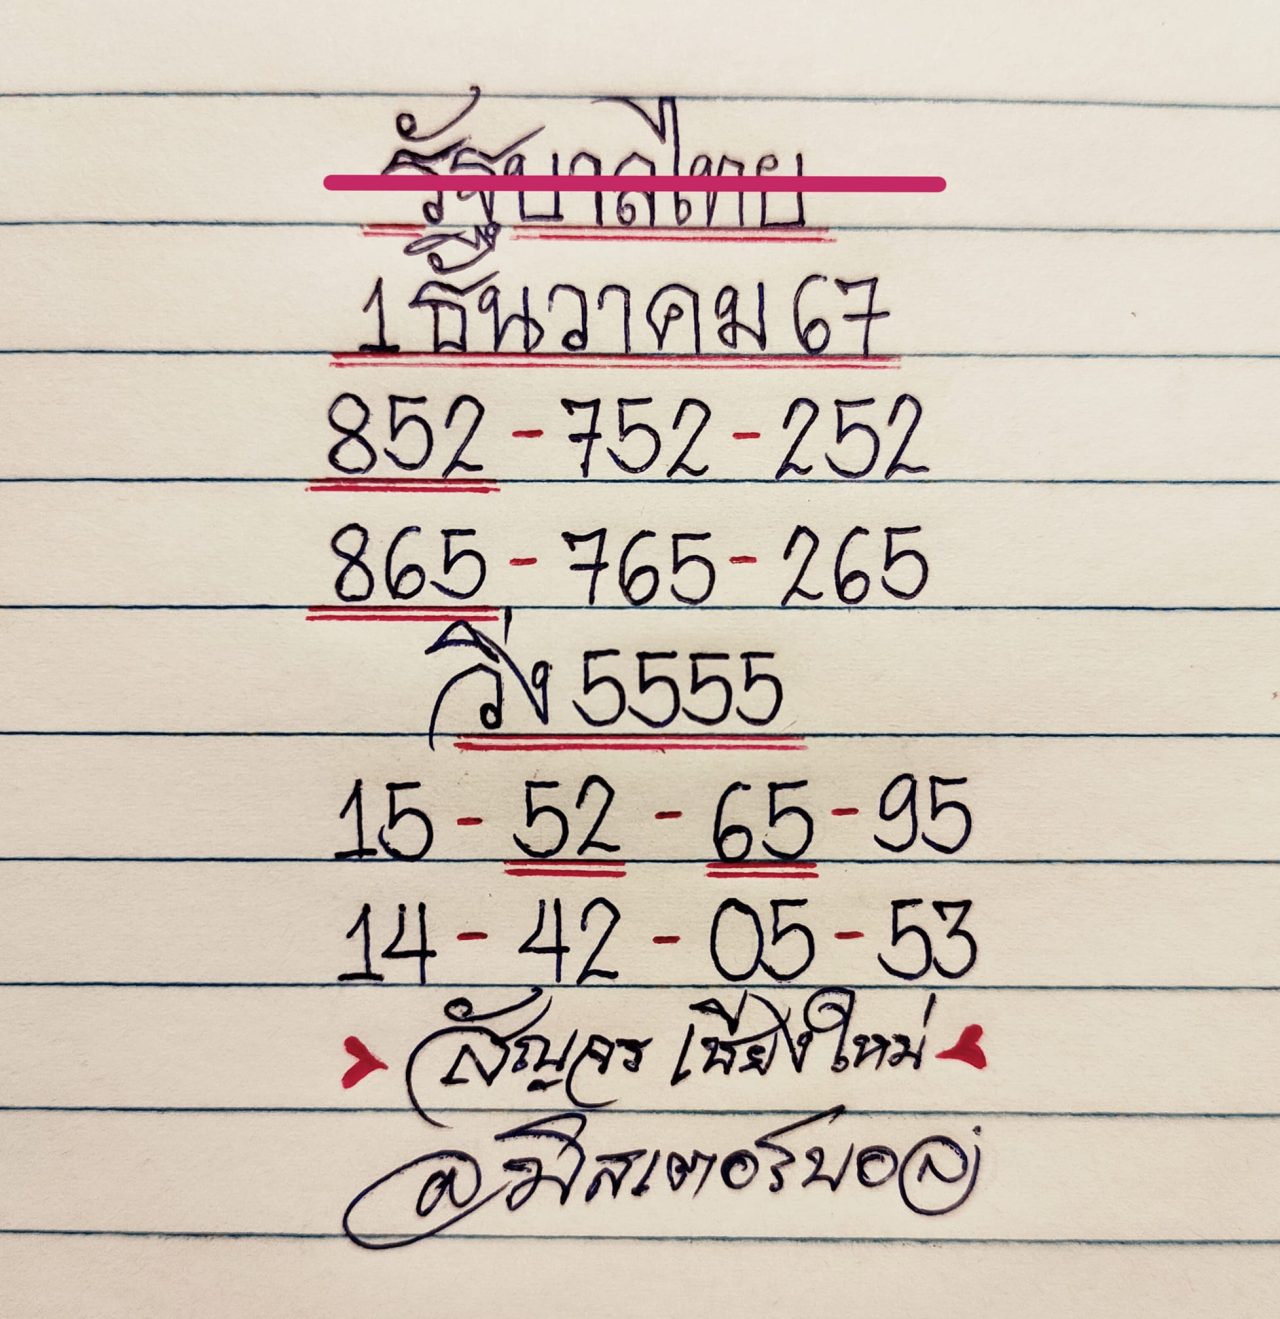 รัฐบาลไทย
1 ธันวาคม 67
852 - 752 - 252
865 - 765 - 265
วิ่ง 5555
15 - 52 - 65 - 95
14 - 42 - 05 - 53
สัญจร เชียงใหม่
@มิสเตอร์บอล